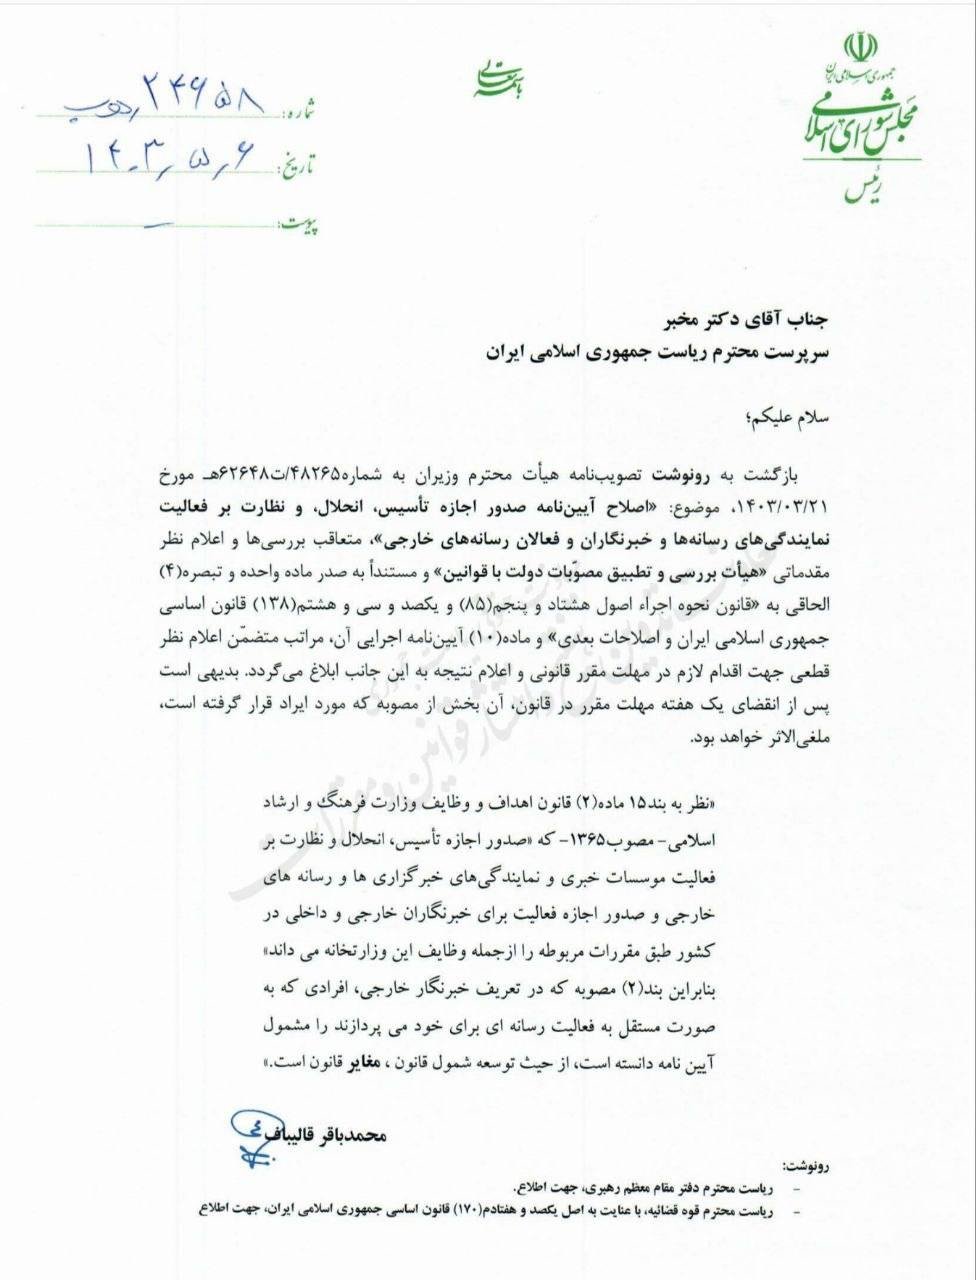 جمهوری اسلامی ایران
مجلس شورای اسلامی
رئیس
باسمه تعالی
شماره: ۲۴۶۵۸
تاریخ: ۱۴۰۳٫۵٫۶
پیوست: -
جناب آقای دکتر مخبر
سرپرست محترم ریاست جمهوری اسلامی ایران
سلام علیکم؛
بازگشت به رونوشت تصویب‌نامه هیأت محترم وزیران به شماره۴۸۲۶۵/ت۶۲۶۴۸هـ مورخ
۱۴۰۳/۰۳/۲۱، موضوع: «اصلاح آیین‌نامه صدور اجازه تأسیس، انحلال، و نظارت بر فعالیت
نمایندگی‌های رسانه‌ها و خبرنگاران و فعالان رسانه‌های خارجی»، متعاقب بررسی‌ها و اعلام نظر
مقدماتی «هیأت بررسی و تطبیق مصوّبات دولت با قوانین» و مستنداً به صدر ماده واحده و تبصره(۴)
الحاقی به «قانون نحوه اجراء اصول هشتاد و پنجم(۸۵) و یکصد و سی و هشتم(۱۳۸) قانون اساسی
جمهوری اسلامی ایران و اصلاحات بعدی» و ماده(۱۰) آیین‌نامه اجرایی آن، مراتب متضمّن اعلام نظر
قطعی جهت اقدام لازم در مهلت مقرر قانونی و اعلام نتیجه به این جانب ابلاغ می‌گردد. بدیهی است
پس از انقضای یک هفته مهلت مقرر در قانون، آن بخش از مصوبه که مورد ایراد قرار گرفته است،
ملغی‌الاثر خواهد بود.
«نظر به بند۱۵ ماده(۲) قانون اهداف و وظایف وزارت فرهنگ و ارشاد
اسلامی- مصوب۱۳۶۵- که «صدور اجازه تأسیس، انحلال و نظارت بر
فعالیت موسسات خبری و نمایندگی‌های خبرگزاری ها و رسانه های
خارجی و صدور اجازه فعالیت برای خبرنگاران خارجی و داخلی در
کشور طبق مقررات مربوطه را ازجمله وظایف این وزارتخانه می داند»
بنابراین بند(۲) مصوبه که در تعریف خبرنگار خارجی، افرادی که به
صورت مستقل به فعالیت رسانه ای برای خود می پردازند را مشمول
آیین نامه دانسته است، از حیث توسعه شمول قانون ، مغایر قانون است.»
محمدباقر قالیباف
رونوشت:
- ریاست محترم دفتر مقام معظم رهبری، جهت اطلاع.
- ریاست محترم قوه قضائیه، با عنایت به اصل یکصد و هفتادم(۱۷۰) قانون اساسی جمهوری اسلامی ایران، جهت اطلاع